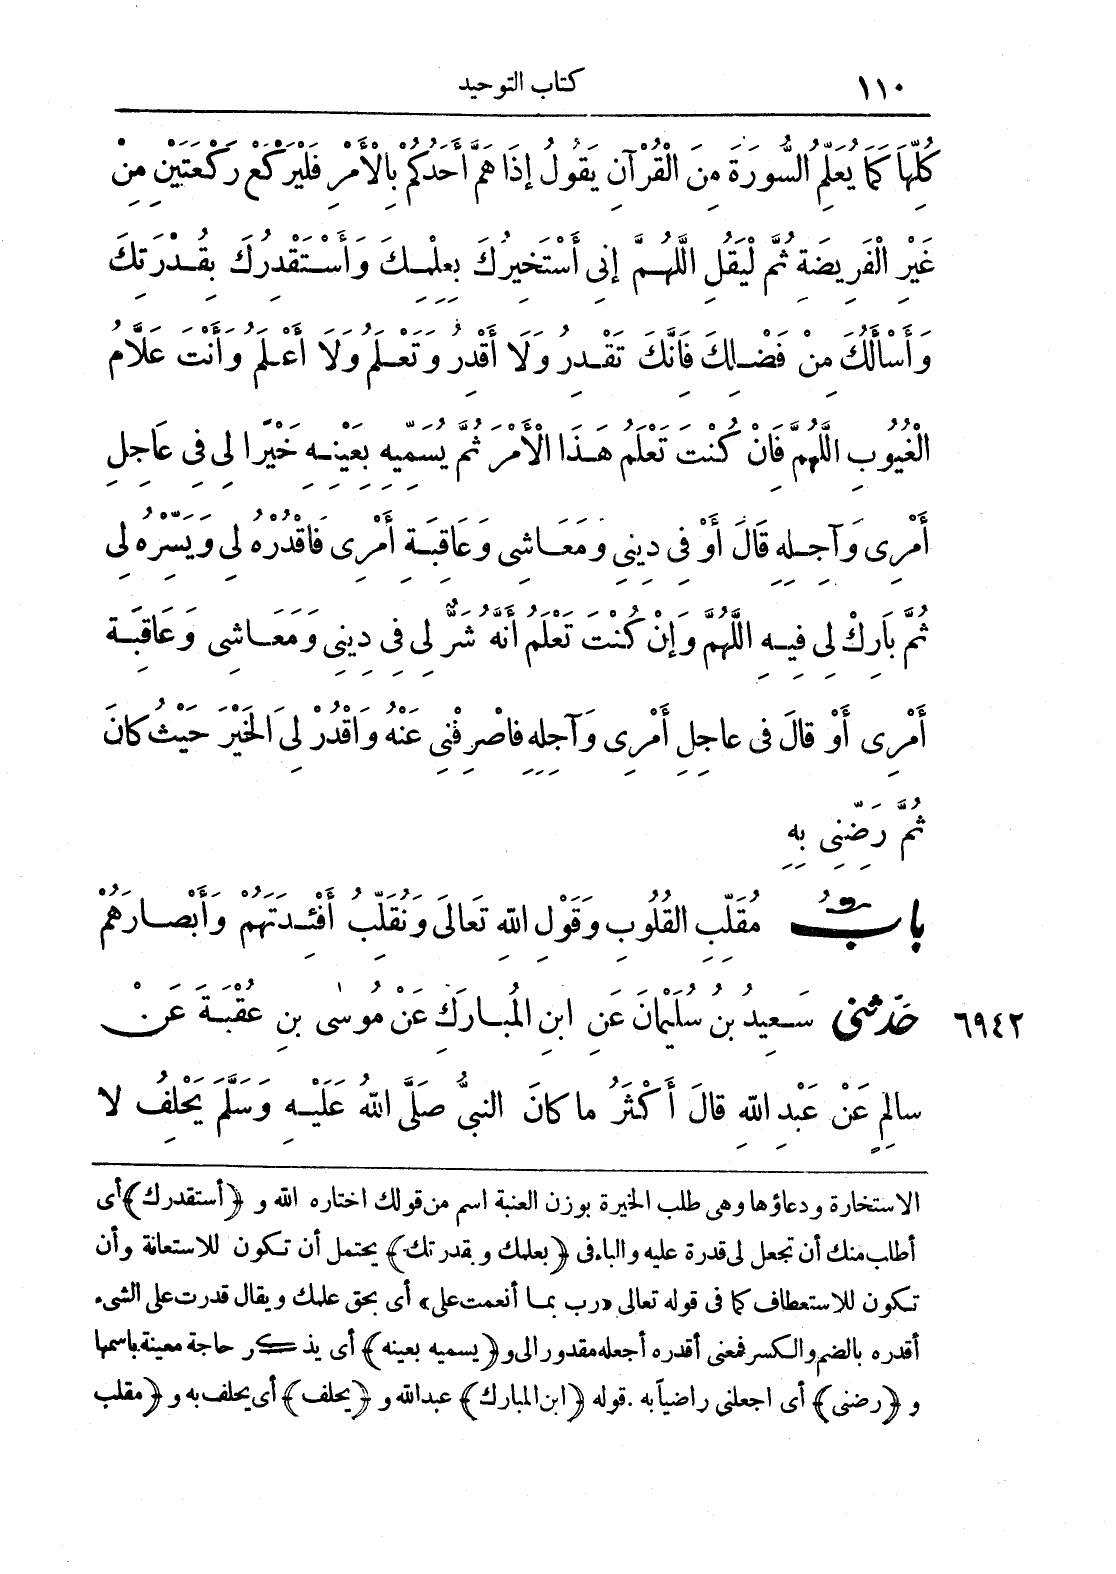 ١١٠ كتاب التوحيد
كُلِّهَا كَمَا يُعَلِّمُ السُّورَةَ مِنَ الْقُرْآنِ يَقُولُ إِذَا هَمَّ أَحَدُكُمْ بِالْأَمْرِ فَلْيَرْكَعْ رَكْعَتَيْنِ مِنْ
غَيْرِ الْفَرِيضَةِ ثُمَّ لْيَقُلِ اللَّهُمَّ إِنِّي أَسْتَخِيرُكَ بِعِلْمِكَ وَأَسْتَقْدِرُكَ بِقُدْرَتِكَ
وَأَسْأَلُكَ مِنْ فَضْلِكَ فَإِنَّكَ تَقْدِرُ وَلَا أَقْدِرُ وَتَعْلَمُ وَلَا أَعْلَمُ وَأَنْتَ عَلَّامُ
الْغُيُوبِ اللَّهُمَّ فَإِنْ كُنْتَ تَعْلَمُ هَذَا الْأَمْرَ ثُمَّ يُسَمِّيهِ بِعَيْنِهِ خَيْرًا لِي فِي عَاجِلِ
أَمْرِي وَآجِلِهِ قَالَ أَوْ فِي دِينِي وَمَعَاشِي وَعَاقِبَةِ أَمْرِي فَاقْدُرْهُ لِي وَيَسِّرْهُ لِي
ثُمَّ بَارِكْ لِي فِيهِ اللَّهُمَّ وَإِنْ كُنْتَ تَعْلَمُ أَنَّهُ شَرٌّ لِي فِي دِينِي وَمَعَاشِي وَعَاقِبَةِ
أَمْرِي أَوْ قَالَ فِي عَاجِلِ أَمْرِي وَآجِلِهِ فَاصْرِفْنِي عَنْهُ وَاقْدُرْ لِيَ الْخَيْرَ حَيْثُ كَانَ
ثُمَّ رَضِّنِي بِهِ
بَابُ مُقَلِّبِ الْقُلُوبِ وَقَوْلِ اللهِ تَعَالَى وَنُقَلِّبُ أَفْئِدَتَهُمْ وَأَبْصَارَهُمْ
٦٩٤٢ حَدَّثَنِي سَعِيدُ بْنُ سُلَيْمَانَ عَنِ ابْنِ الْمُبَارَكِ عَنْ مُوسَى بْنِ عُقْبَةَ عَنْ
سَالِمٍ عَنْ عَبْدِ اللهِ قَالَ أَكْثَرُ مَا كَانَ النَّبِيُّ صَلَّى اللهُ عَلَيْهِ وَسَلَّمَ يَحْلِفُ لَا
الاستخارة ودعاؤها وهى طلب الخيرة بوزن العنبة اسم من قولك اختاره الله و ﴿أستقدرك﴾ أى
أطلب منك أن تجعل لى قدرة عليه والباء فى ﴿بعلمك وبقدرتك﴾ يحتمل أن تكون للاستعانة وأن
تكون للاستعطاف كما فى قوله تعالى «رب بما أنعمت على» أى بحق علمك ويقال قدرت على الشىء
أقدره بالضم والكسر فمعنى أقدره أجعله مقدورا لى و ﴿يسميه بعينه﴾ أى يذكر حاجة معينة باسمها
و ﴿رضنى﴾ أى اجعلنى راضيا به. قوله ﴿ابن المبارك﴾ عبد الله و ﴿يحلف﴾ أى يحلف به و ﴿مقلب